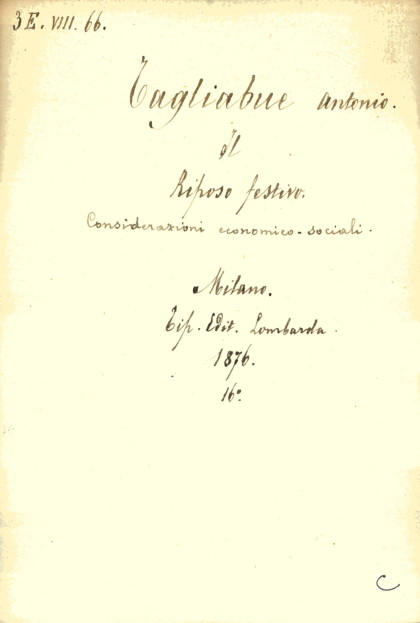 3 E. VIII. 66.
Tagliabue Antonio.
Il
Riposo festivo.
Considerazioni economico-sociali.
Milano.
Tip. Edit. Lombarda.
1876.
16°.
C